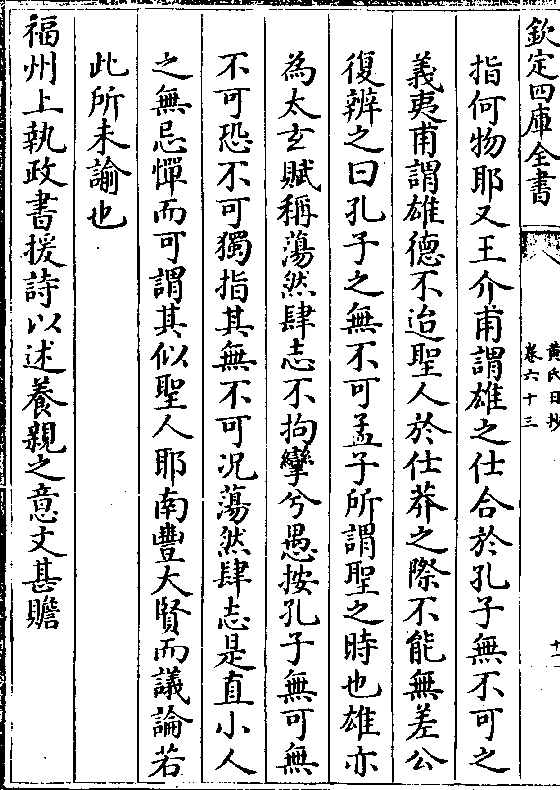 欽定四庫全書
黄氏日抄
卷六十三
指何物耶又王介甫謂雄之仕合於孔子無不可之
義夷甫謂雄德不迨聖人於仕莽之際不能無差公
復辨之曰孔子之無不可孟子所謂聖之時也雄亦
為太𤣥賦稱蕩然肆志不拘攣兮愚按孔子無可無
不可恐不可獨指其無不可况蕩然肆志是直小人
之無忌憚而可謂其似聖人耶南豐大賢而議論若
此所未諭也
福州上執政書援詩以述養親之意文甚贍